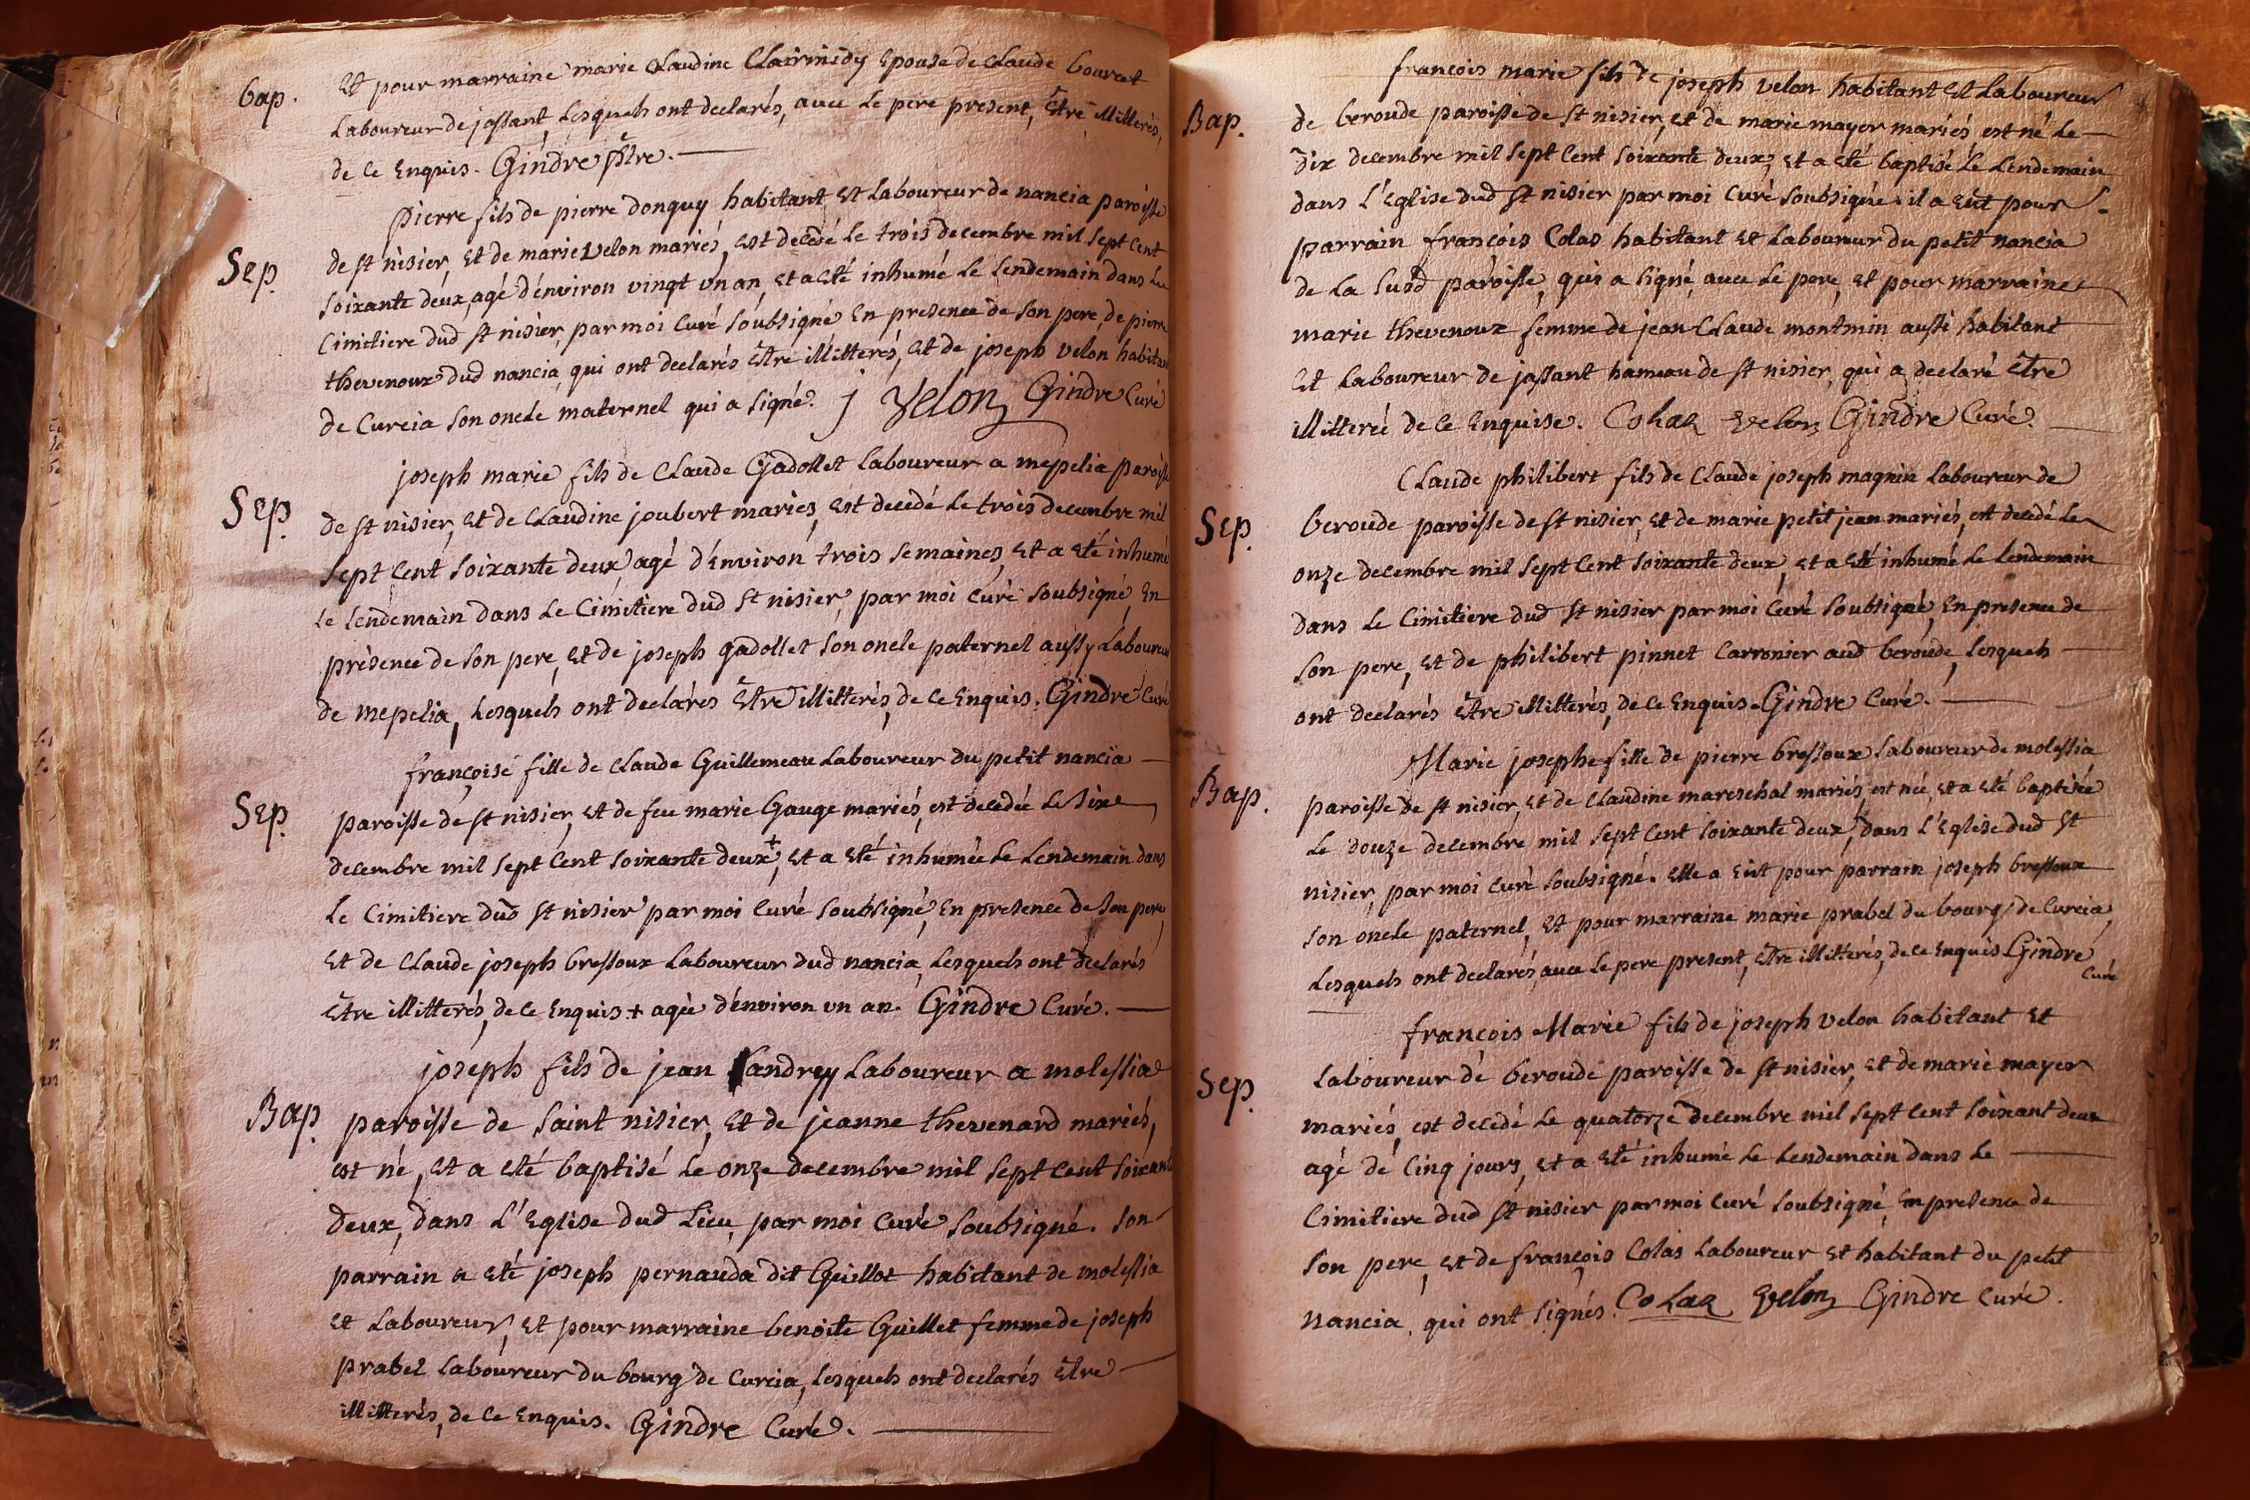 bap.
Et pour marraine marie Claudine Clairmidy Epouse de Claude bourcet
Laboureur de jossant, Lesquels ont declarés, avec Le pere present, Être illitterés,
de ce Enquis. Gindre ptre.
pierre fils de pierre donguy habitant Et Laboureur de nancia paroisse
Sep.
de st nisier, Et de marie Velon mariés, Est decedé Le trois decembre mil Sept Cent
Soixante deux, agé d'Environ vingt un an, Et a Eté inhumé Le Lendemain dans Le
Cimitiere dud st nisier, par moi Curé Soubsigné En presence de Son pere, de pierre
thevenoux dud nancia, qui ont declarés Être illitterés, Et de joseph velon habitant
de Curcia Son oncle maternel qui a Signé. j Velon Gindre Curé
joseph marie fils de Claude Gadollet Laboureur a mepelia paroisse
Sep.
de st nisier, Et de Claudine joubert mariés, Est decedé Le trois decembre mil
Sept Cent Soixante deux agé d'Environ trois Semaines, Et a Eté inhumé
Le Lendemain dans Le Cimitiere dud st nisier, par moi Curé Soubsigné, En
presence de Son pere, Et de joseph gadollet Son oncle paternel aussy Laboureur
de mepelia, Lesquels ont declarés Être illitterés, de ce Enquis. Gindre Curé
françoise fille de Claude Guillemeau Laboureur du petit nancia
Sep.
paroisse de st nisier, Et de feue marie Gauge mariés, est decedée Le Sixe
decembre mil Sept Cent Soixante deux +, Et a Eté inhumée Le Lendemain dans
Le Cimitiere dud st nisier par moi Curé Soubsigné, En presence de Son pere,
Et de Claude joseph bressoux Laboureur dud nancia, Lesquels ont declarés
Etre illitterés, de ce Enquis + agée d'environ un an. Gindre Curé.
joseph fils de jean Landrey Laboureur a molessia
Bap.
paroisse de Saint nisier, Et de jeanne thevenard mariés,
est né, Et a Eté baptisé Le onze decembre mil Sept Cent Soixante
deux, dans L'Eglise dud Lieu, par moi Curé Soubsigné. Son
parrain a Eté joseph pernauda dit Guillot habitant de molessia
Et Laboureur, Et pour marraine benoite Guillet femme de joseph
prabel Laboureur du bourg de Curcia, Lesquels ont declarés Être
illitterés, de ce Enquis. Gindre Curé.
francois marie fils de joseph velon habitant Et Laboureur
Bap.
de beroude paroisse de St nisier, Et de marie mayer mariés est né Le
dix decembre mil Sept Cent Soixante deux, Et a Eté baptisé Le Lendemain
dans L'Eglise dud St nisier par moi Curé Soubsigné. il a Eüt pour
parrain françois Colas habitant Et Laboureur du petit nancia
de La Susd paroisse, qui a Signé, avec Le pere, Et pour marraine
marie thevenoux femme de jean Claude montmin aussi habitant
Et Laboureur de jossant hameau de St nisier, qui a declaré Être
illitterée de ce Enquise. Colaz velon Gindre Curé.
Claude philibert fils de Claude joseph magnin Laboureur de
Sep.
beroude paroisse de St nisier, Et de marie petitjean mariés, est decedé Le
onze decembre mil Sept Cent Soixante deux, Et a Eté inhumé Le Lendemain
dans Le Cimitiere dud St nisier par moi Curé Soubsigné, En presence de
Son pere, Et de philibert pinnet Carronier aud beroude, Lesquels
ont declarés Être illitterés, de ce Enquis. Gindre Curé.
Marie josephe fille de pierre bressoux Laboureur de molessia
Bap.
paroisse de St nisier, Et de Claudine mareschal mariés, est née, Et a Eté baptisée
Le douze decembre mil Sept Cent Soixante deux, dans L'Eglise dud St
nisier, par moi Curé Soubsigné. Elle a Eüt pour parrain joseph bressoux
Son oncle paternel, Et pour marraine marie prabel du bourg de Curcia,
Lesquels ont declarés, avec Le pere present, Être illitterés, de ce Enquis Gindre
Curé
françois Marie fils de joseph velon habitant Et
Sep.
Laboureur de beroude paroisse de St nisier, Et de marie mayer
mariés, est decedé Le quatorze decembre mil Sept Cent Soixant deux
agé de Cinq jours, Et a Eté inhumé Le Lendemain dans Le
Cimitiere dud St nisier par moi Curé Soubsigné, En presence de
Son pere, Et de françois Colas Laboureur Et habitant du petit
nancia, qui ont Signés. Colaz Velon Gindre Curé.